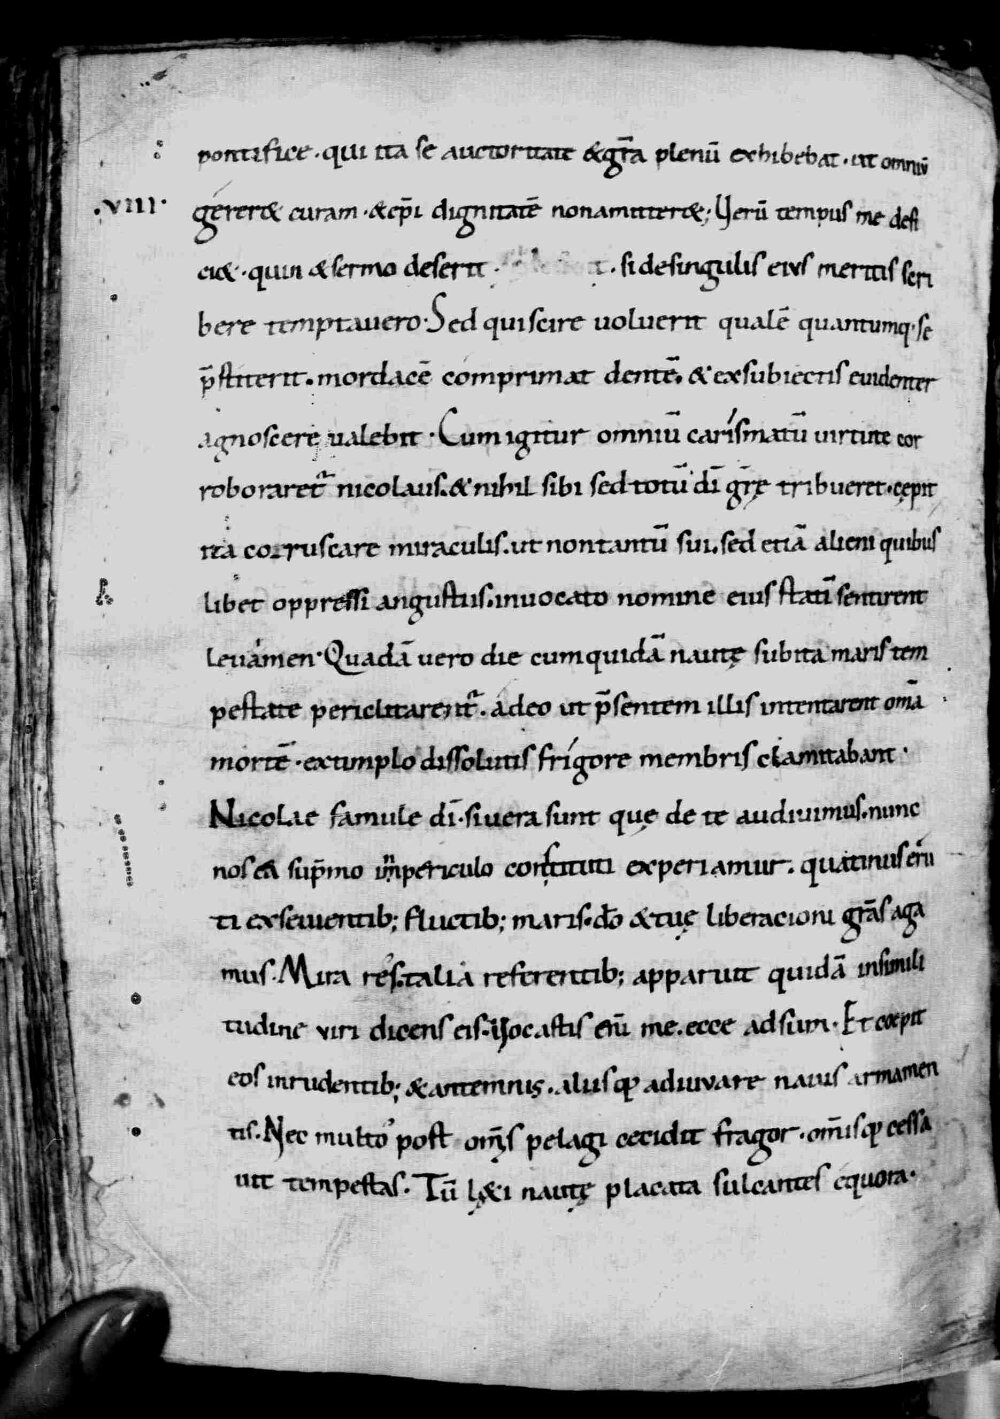 pontifice · qui ita se auctoritate & gr̄a plenū exhibebat · ut omniū
.VIII. gerer& curam · & ep̄i dignitatē non amitter&; Verū tempus me defi
ci& · quin & sermo deserit · si de singulis eius meritis scri
bere temptauero · Sed qui scire uoluerit qualē quantumq· se
p̄stiterit. mordacē comprimat dentē. & ex subiectis euidenter
agnoscere ualebit · Cum igitur omniū carismatū uirtute cor
roboraret᷑ nicolaus. & nihil sibi sed totū dī gr̄ę tribueret. cępit
ita corruscare miraculis. ut non tantū sui. sed etiā alieni quibus
libet oppressi angustiis. inuocato nomine eius statī sentirent
leuamen · Quadā uero die cum quidā nautę subita maris tem
pestate periclitarent᷑. adeo ut p̄sentem illis intentarent om̄a
mortē · extimplo dissolutis frigore membris clamitabant ·
Nicolae famule dī · si uera sunt quę de te audiuimus. nunc
nos ea sup̄mo in periculo constituti experiamur. quatinus eru
ti ex seuientib; fluctib; maris. dō & tuę liberacioni gr̄as aga
mus. Mira res. talia referentib; apparuit quidā in simili
tudine uiri dicens eis. Vocastis enī me. ecce adsum · Et coepit
eos in rudentib; & antemnis. aliisq; adiuuare nauis armamen
tis. Nec multo post om̄s pelagi cecidit fragor · om̄isq; cessa
uit tempestas. Tū lę&i nautę placata sulcantes equora ·